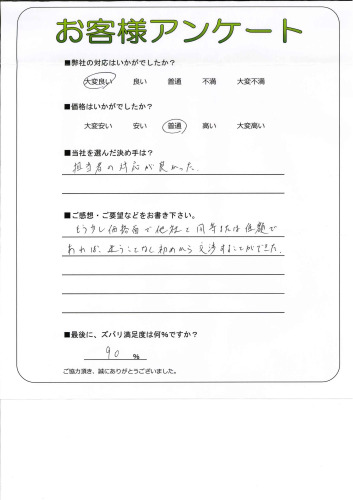 お客様アンケート
■弊社の対応はいかがでしたか？
大変良い 良い 普通 不満 大変不満
■価格はいかがでしたか？
大変安い 安い 普通 高い 大変高い
■当社を選んだ決め手は？
担当者の対応が良かった.
■ご感想・ご要望などをお書き下さい。
もう少し価格面で他社と同等または低額で
あれば、迷うことなく初めから交渉することができた.
■最後に、ズバリ満足度は何％ですか？
90 ％
ご協力頂き、誠にありがとうございました。